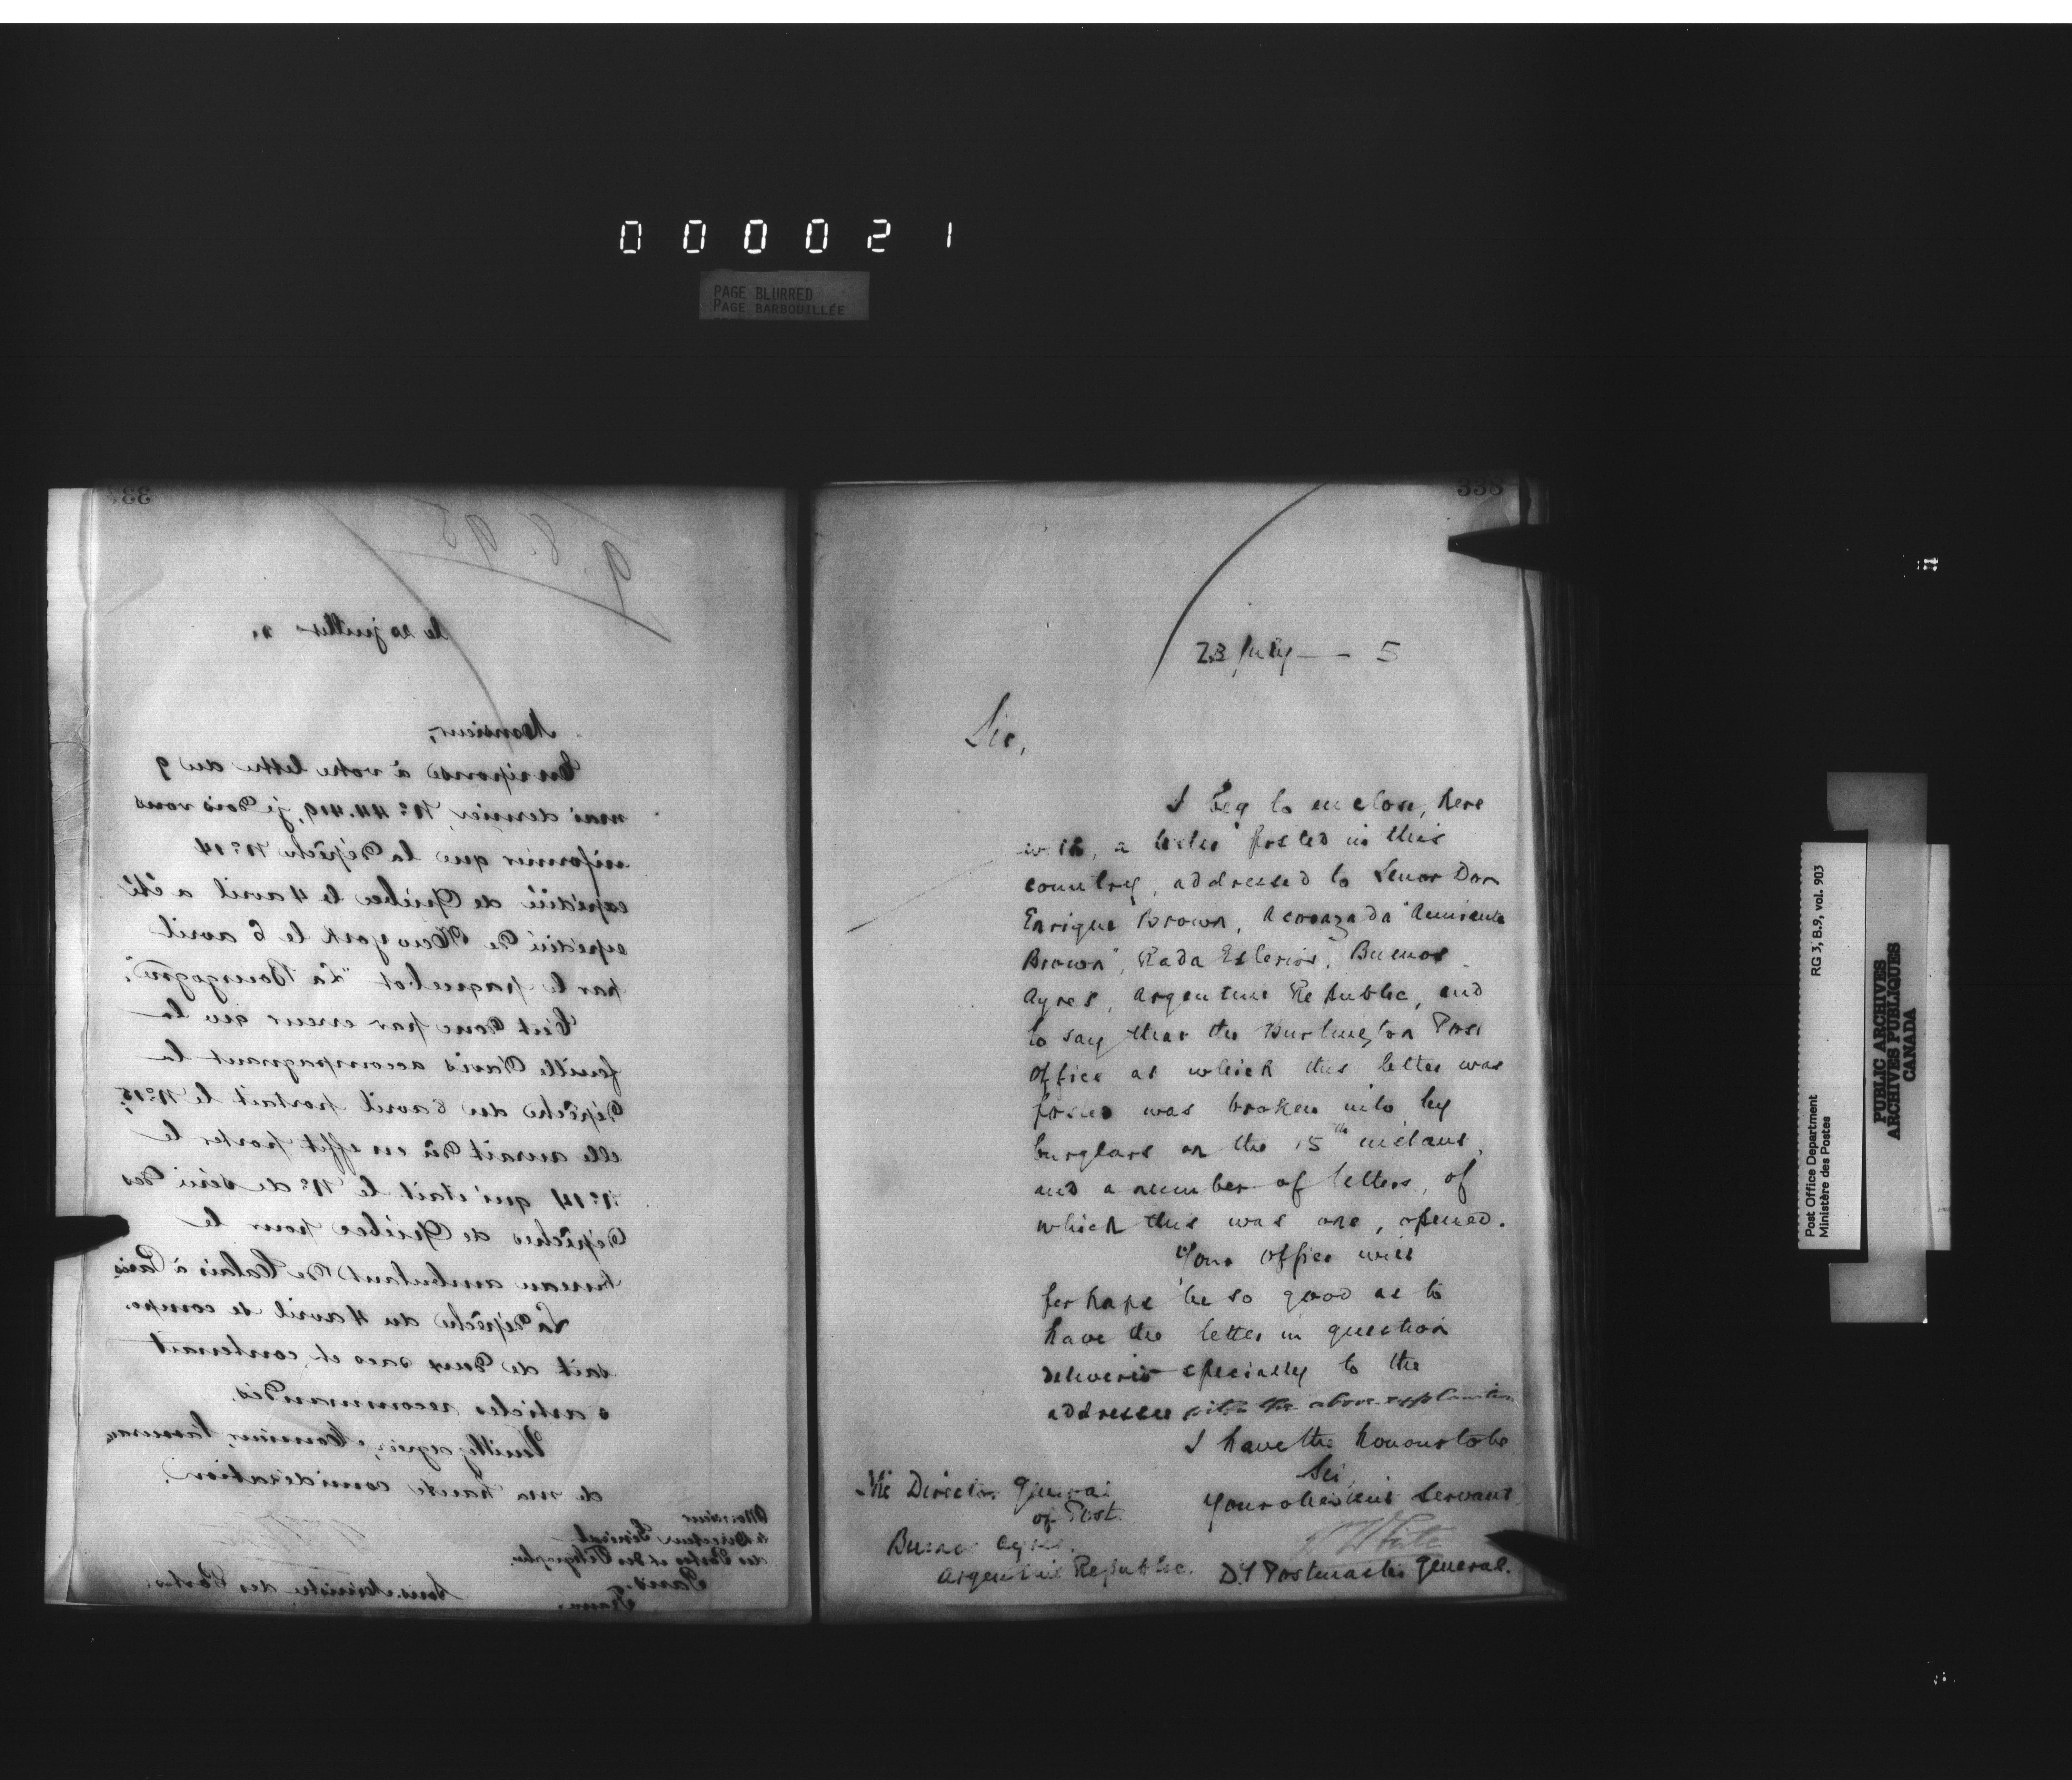 000021
PAGE BLURRED
PAGE BARBOUILLÉE
9.8.95
le 20 juillet
Monsieur,
En réponse à votre lettre du 9
mai dernier, No. 44.419, je dois vous
informer que la dépêche No. 14
expédiée de Québec le 4 avril a été
expédiée de New York le 6 avril
par le paquebot "La Bourgogne".
C'est donc par erreur que la
feuille d'avis accompagnant la
dépêche du 6 avril portait le No. 15;
elle aurait dû en effet porter le
No. 14 qui était le No. de série des
dépêches de Québec pour le
bureau ambulant de Calais à Paris
La dépêche du 4 avril se compo-
sait de deux sacs et contenait
articles recommandés.
Veuillez agréer, Monsieur, l'assurance
de ma haute considération.
Monsieur
le Directeur Général
des Postes et des Télégraphes
Paris.
France.
Sous-Ministre des Postes.
338
23 July — 5
Sir,
I beg to enclose, here
with, a letter posted in this
country, addressed to Senor Don
Enrique Brown, Acorazada "Almirante
Brown", Rada Esterior, Buenos
Ayres, Argentine Republic, and
to say that the Burlington Post
Office at which this letter was
posted was broken into by
burglars on the 15th instant,
and a number of letters, of
which this was one, opened.
Your office will
perhaps be so good as to
have the letter in question
delivered specially to the
addressee with the above explanation
I have the honour to be
Sir,
Your obedient Servant
W White
D.y Postmaster General.
The Director General
of Post.
Buenos Ayres.
Argentine Republic.
Post Office Department
Ministère des Postes
RG 3, B.9, vol. 903
PUBLIC ARCHIVES
ARCHIVES PUBLIQUES
CANADA